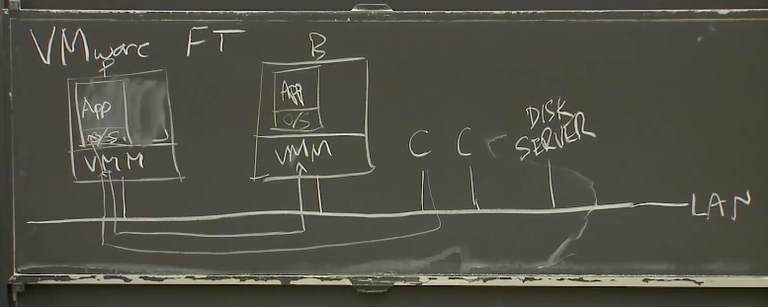 VMware FT
P
B
App
O/S
VMM
App
O/S
VMM
C
C
DISK
SERVER
LAN